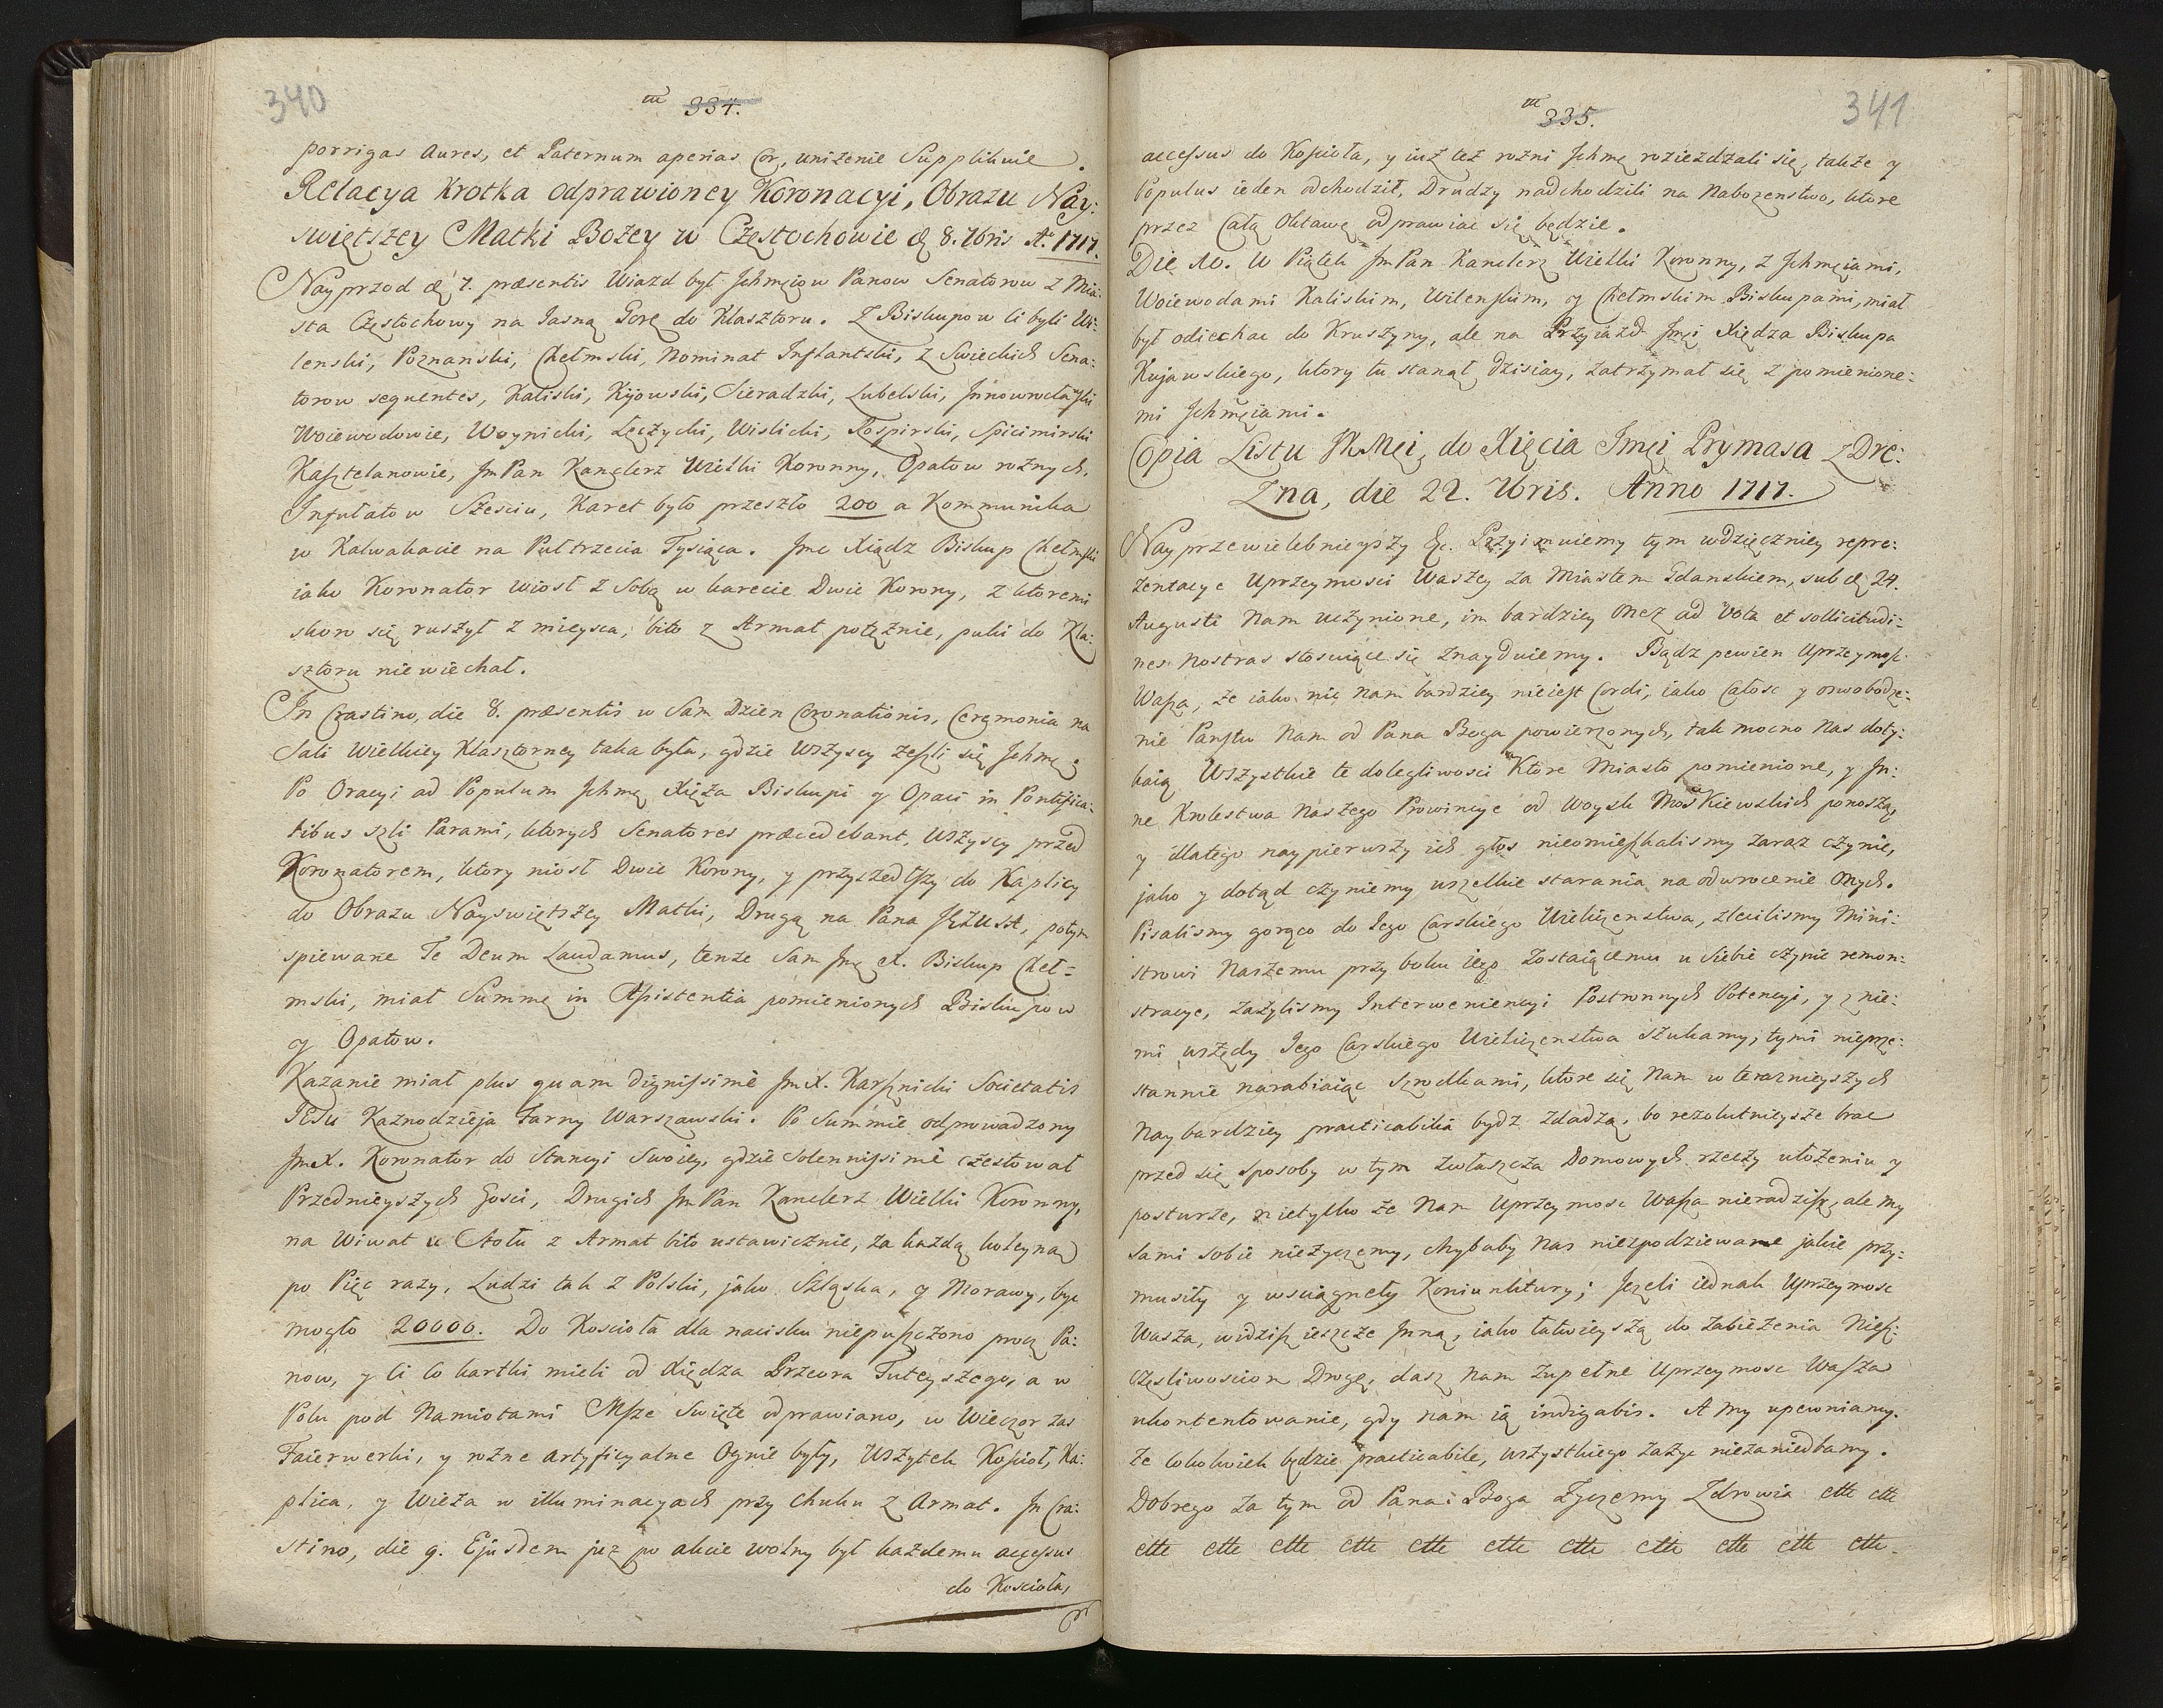 340
334.
porrigas Aures, et Paternum aperias Cor, unizenie Supplikuie.
Relacya Krotka odprawioney Koronacyi, Obrazu Nay:
swiętszey Matki Bożey w Częstochowie d 8. 7bris A. 1717.
Nayprzod d 7. præsentis Wiazd był Jchmciow Panow Senatorow z Mia:
sta Częstochowy na Jasną Gorę do Klasztoru. Z Biskupow ci byli Wi:
lenski, Poznanski, Chełmski, Nominat Inflantski, z Swieckich Sena:
torow sequentes, Kaliski, Kijowski, Sieradzki, Lubelski, Jnnowrocławski
Woiewodowie, Woynicki, Łęczycki, Wislicki, Rospirski, Spicimirski
Kasztelanowie, Jm Pan Kanclerz Wielki Koronny, Opatow rożnych,
Infułatow Szesciu, Karet było przeszło 200 a Kommunika
w Kalwakacie na Pułtrzecia Tysiąca. Jmc Xiądz Biskup Chełmski
iako Koronator wiosł z Sobą w karecie Dwie Korony, z ktoremi
skoro się ruszył z mieysca, bito z Armat potężnie, puki do Kla:
sztoru niewiechał.
In Crastino, die 8. præsentis w Sam Dzien Coronationis, Ceremonia na
Sali Wielkiey Klasztorney taka była, gdzie wszyscy zeszli się Jchmc
Po Oracyi ad Populum Jchmc Xięża Biskupi y Opaci in Pontifica:
tibus szli Parami, ktorych Senatores præcedebant, wszyscy przed
Koronatorem, ktory niosł Dwie Korony, y przyszedłszy do Kaplicy
do Obrazu Nayswiętszey Matki, Drugą na Pana JEZUSA, potym
spiewane Te Deum Laudamus, tenże Sam Jmc X. Biskup Cheł=
mski, miał Summę in Assistentia pomienionych Biskupow
y Opatow.
Kazanie miał plus quam dignissimè Jm X. Karsznicki Societatis
Jesu Kaznodzieja Farny Warszawski. Po Summie odprowadzony
Jm X. Koronator do Stancyi Swoiey, gdzie Solennissimè częstował
Przednieyszych Gosci, Drugich Jm Pan Kanclerz Wielki Koronny,
na Wiwat u Stołu z Armat bito ustawicznie, za każdą koleyną
po Pięc razy, Ludzi tak z Polski, jako Sląska, y Morawy, byc
mogło 20000. Do Koscioła dla nacisku niepuszczono procz Pa:
now, y ci co kartki mieli od Xiędza Przeora Tuteyszego, a w
Polu pod Namiotami Msze Swięte odprawiano, w Wieczor zas
Faierwerki, y rożne artyficyalne Ognie były, Wszytek Kosciół, Ka:
plica, y Wieża w illuminacyach przy chuku z Armat. In Cra:
stino, die 9. Ejusdem już po akcie wolny był każdemu accessus
do Koscioła,
341
335.
accessus do Koscioła, y iuż też rożni Jchmc rozieżdzali się, także y
Populus ieden odchodził, Drudzy nadchodzili na Nabozenstwo, ktore
przez Całą Oktawę odprawiac się będzie.
Die 10. W Piątek Jm Pan Kanclerz Wielki Koronny, z Jchmciami,
Woiewodami Kaliskim, Wilenskim, y Chełmskim Biskupami, miał
był odiechac do Kruszyny, ale na Przyiazd Jmci Xiędza Biskupa
Kujawskiego, ktory tu stanął dzisiay, zatrzymał się z pomienione:
mi Jchmciami.
Copia Listu JKMci, do Xięcia Jmci Prymasa z Dre:
zna, die 22. 7bris. Anno 1717.
Nayprzewielebnieyszy &c. Przyimuiemy tym wdzięczniey repre:
zentacye Uprzeymosci Waszey za Miastem Gdanskiem, sub d 24.
Augusti Nam uczynione, im bardziey onez ad vota et sollicitudi:
nes nostras stosuiące się znayduiemy. Bądz pewien Uprzeymosc
Wasza, że iako nic Nam bardziey nieiest Cordi, iako całosc y oswobodze:
nie Panstw Nam od Pana Boga powierzonych, tak mocno Nas doty:
kaią Wszystkie te dolegliwosci Ktore Miasto pomienione, y In:
ne Krolestwa Naszego Prowincye od Woysk Moskiewskich ponoszą,
y dlatego naypierwszy ich głos nieomieszkalismy zaraz czynic,
jako y dotąd czyniemy wszelkie starania na odwrocenie onych.
Pisalismy gorąco do Jego Carskiego Wieliczenstwa, zlecilismy Mini:
strowi Naszemu przy boku iego zostaiącemu u Siebie czynic remon:
stracye, zażylismy Interweniencyi Postronnych Potencyi, y z nie:
mi wszędy Jego Carskiego Wieliczenstwa szukamy, tymi nieprze:
stannie narabiaiąc szrodkami, ktore się Nam w terazniejszych
Naybardziey practicabilia bydz zdadzą, bo rezolutnieysze brac
przed się sposoby w tym zwłaszcza Domowych rzeczy ułożeniu y
posturze, nietylko że Nam Uprzeymosc Wasza nieradzisz, ale my
Sami Sobie nieżyczemy, chybaby Nas niespodziewane jakie przy:
musiły y wciągnęły Koniunktury; Jeżeli iednak Uprzeymosc
Wasza, widzisz ieszcze Inną, iako łatwieyszą do zabieżenia Niesz:
częsliwosciom Drogę, dasz Nam zupełne Uprzeymosc Wasza
ukontentowanie, gdy nam ią indigabis. A My upewniamy.
że cokolwiek będzie practicabile, wszystkiego zażyc niezaniedbamy.
Dobrego za tym od Pana Boga życzemy Zdrowia ette ette
ette ette ette ette ette ette ette ette ette ette ette.